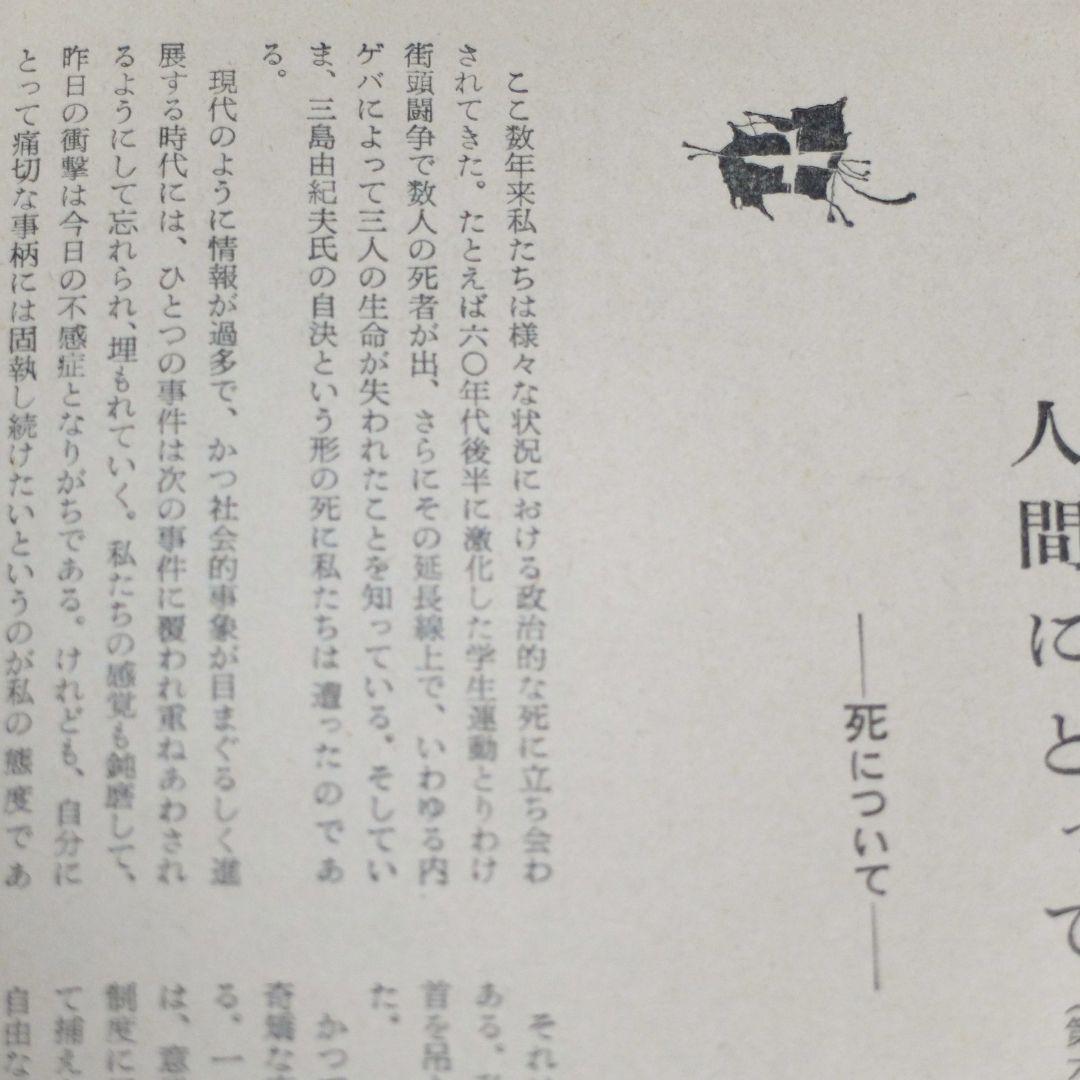 人間にとって
──死について──
ここ数年来私たちは様々な状況における政治的な死に立ち会わ
されてきた。たとえば六〇年代後半に激化した学生運動とりわけ
街頭闘争で数人の死者が出、さらにその延長線上で、いわゆる内
ゲバによって三人の生命が失われたことを知っている。そしてい
ま、三島由紀夫氏の自決という形の死に私たちは遭ったのであ
る。
現代のように情報が過多で、かつ社会的事象が目まぐるしく進
展する時代には、ひとつの事件は次の事件に覆われ重ねあわされ
るようにして忘れられ、埋もれていく。私たちの感覚も鈍磨して、
昨日の衝撃は今日の不感症となりがちである。けれども、自分に
とって痛切な事柄には固執し続けたいというのが私の態度であ
それ
ある。
首を吊
た。
かつ
奇矯な
る。一
は、意
制度に
て捕え
自由な